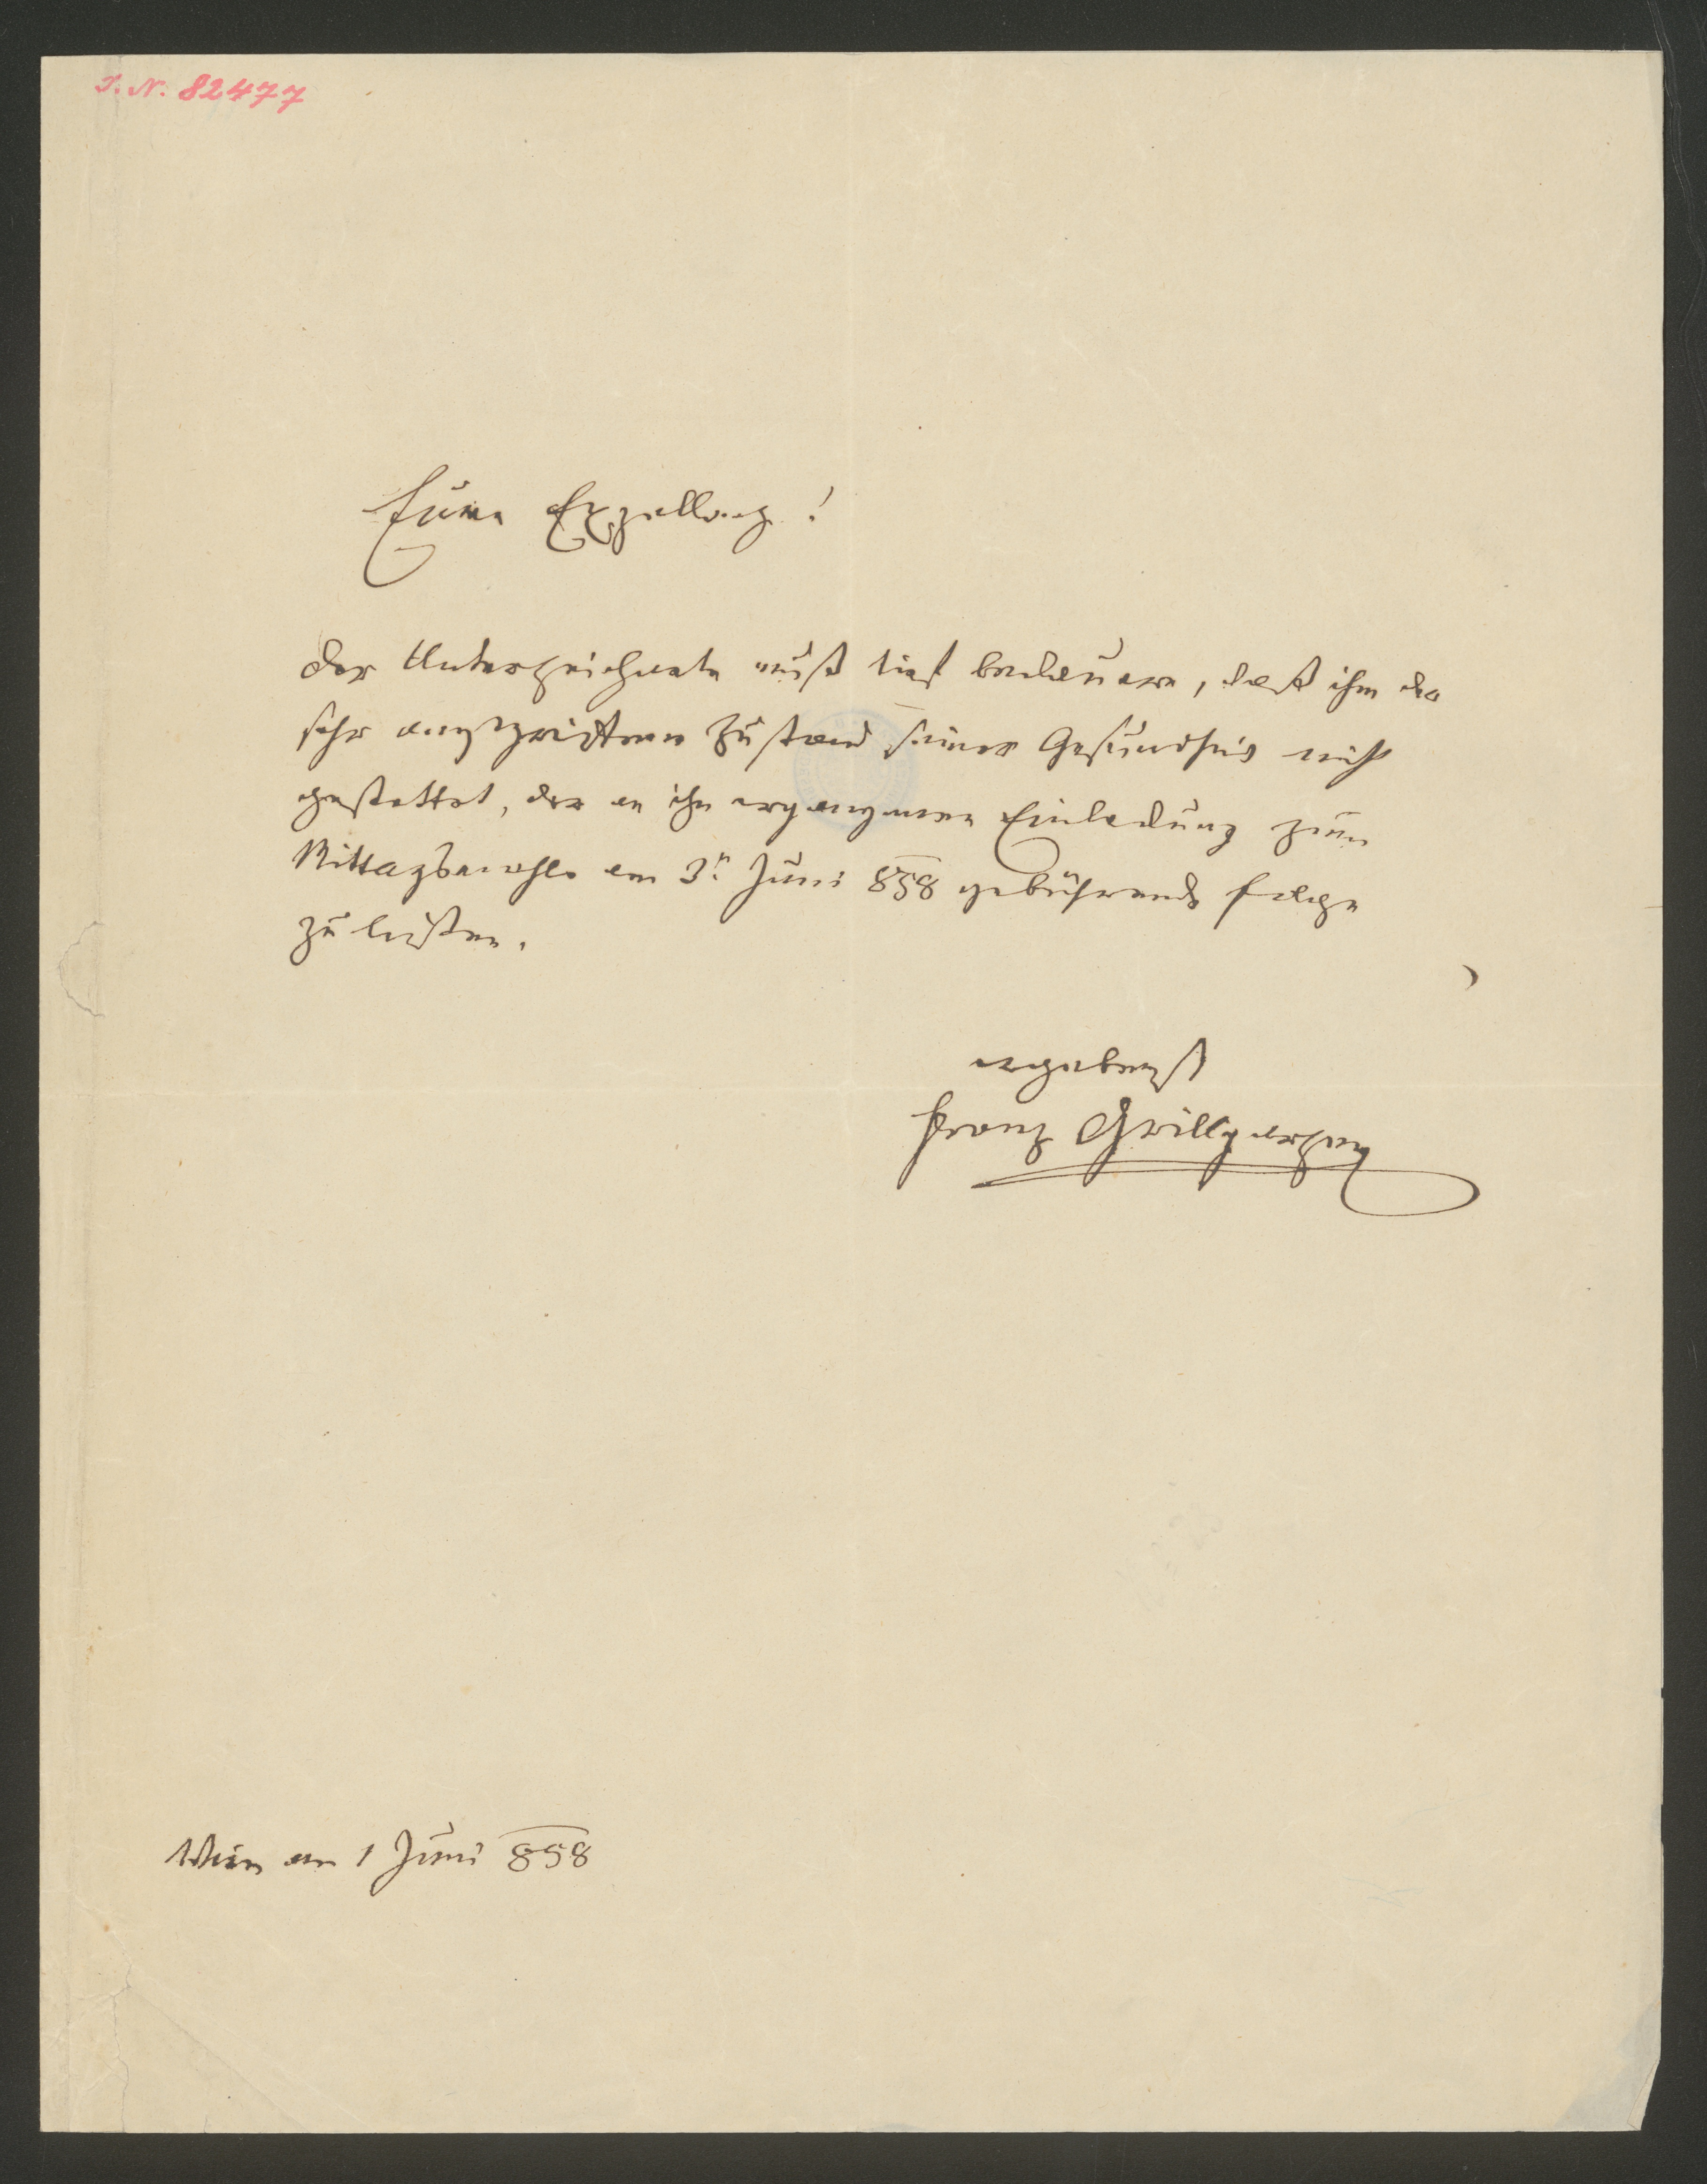 I. N. 82477
Eure Exzellenz!
Der Unterzeichnete muß tief bedauern, daß ihm der
sehr Zustand seiner Gesundheit nicht
gestattet, der an ihn ergangenen Einladung zum
Mittagsmahle am 3n Juni 858 gebührend folge
zu leisten.
ergebenst
Franz Grillparzer
Wien am 1 Juni 858